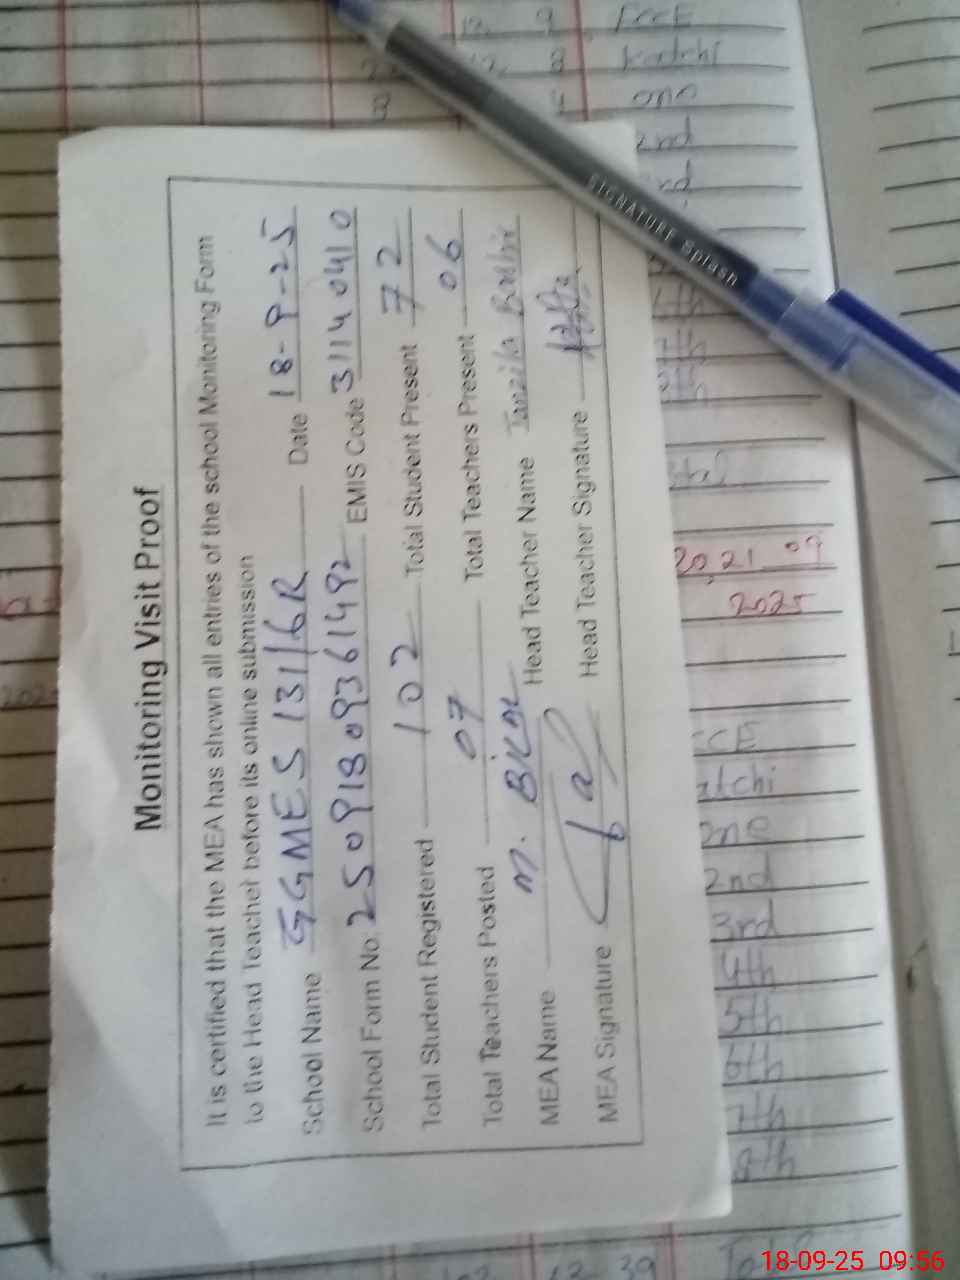 Monitoring Visit Proof
It is certified that the MEA has shown all entries of the school Monitoring Form
to the Head Teacher before its online submission
School Name GGMES 131/6R Date 18-9-25
School Form No. 25091809361492 EMIS Code 31140410
Total Student Registered 102 Total Student Present 72
Total Teachers Posted 07 Total Teachers Present 06
MEA Name M. Bilal Head Teacher Name Tanzila Bashir
MEA Signature Head Teacher Signature
SIGNATURE Splash
ECCE
Katchi
one
2nd
rd
20,21 09
2025
CCE
atchi
one
2nd
3rd
4th
5th
6th
7th
8th
18-09-25 09:56